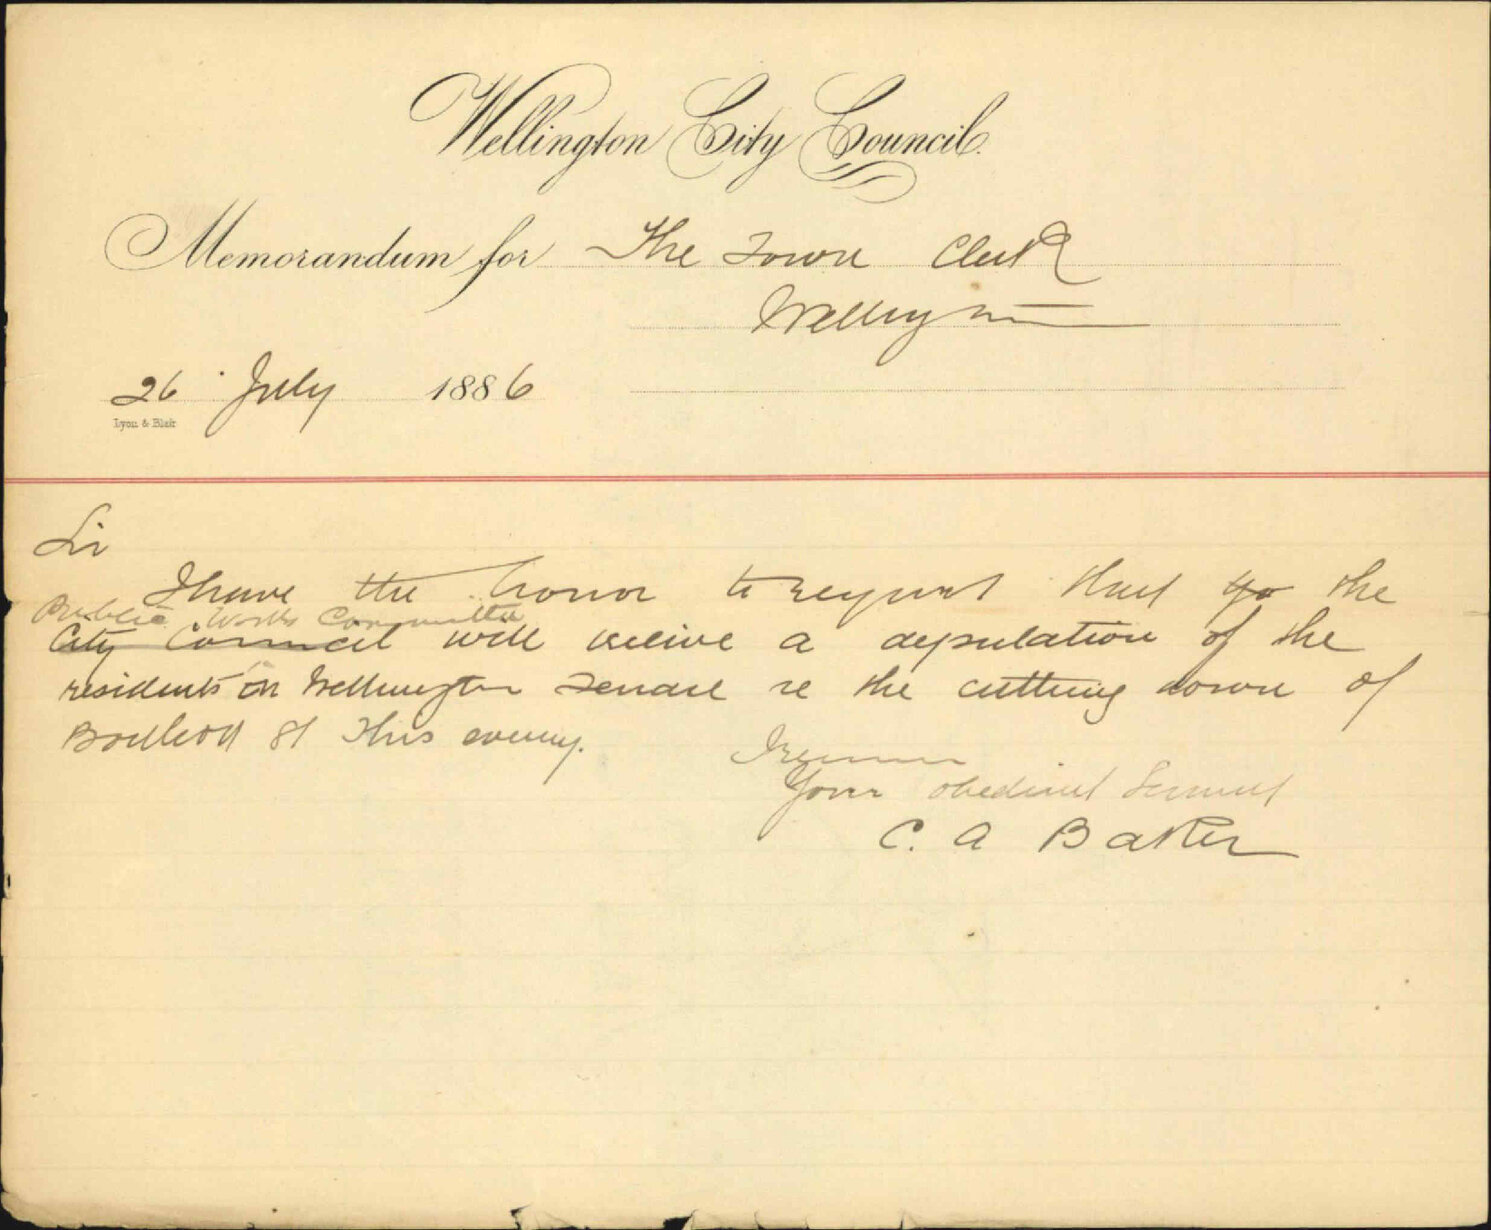 Wellington City Council.
Memorandum for The Town Clerk
Wellington
26 July 1886
Lyon & Blair
Sir
I have the honor to request that yo the
Public Works Committee
City Council will receive a deputation of the
residents in Wellington Terrace re the cutting down of
St this evening.
I remain
Your obedient Servant
C. A Baker